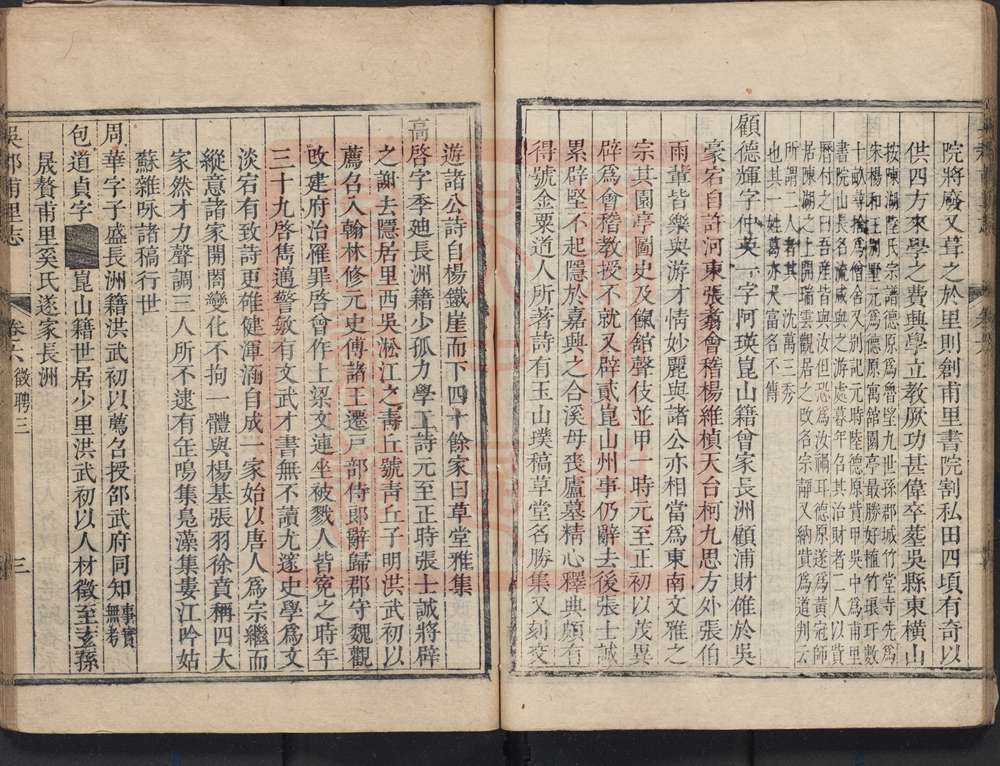 院將廢又葺之於里則創甫里書院割私田四頃有奇以
供四方來學之費興學立教厥功甚偉卒塟吳縣東橫山
按陳湖陸氏宗譜德原爲魯望九世孫郡城竹堂寺先爲
朱楊和王別墅元爲德原寓舘園亭最勝好植竹環玗數
十畝幸捨爲僧舍又別記元時陸德原貲甲吳中爲甫里
書院山長名流咸與之游處暮年召其治財者二人以貲
曆付之曰吾産皆與汝但恐爲汝禍耳德原遂爲黃冠師
居陳湖之上開瑞雲觀居之改名宗靜又納貲爲道判云
所謂二人者其一沈萬三秀
也其一姓葛亦大富名不傳
顧德輝字仲英一字阿瑛崑山籍曾家長洲顧浦財雄於吳
豪宕自許河東張翥會稽楊維楨天台柯九思方外張伯
雨輩皆樂與游才情妙麗與諸公亦相當爲東南文雅之
宗其園亭圖史及餼舘聲伎並甲一時元至正初以茂異
辟爲會稽教授不就又辟貳崑山州事仍辭去後張士誠
累辟堅不起隱於嘉興之合溪母喪廬墓精心釋典頗有
得號金粟道人所著詩有玉山璞稿草堂名勝集又刻交
遊諸公詩自楊鐵崖而下四十餘家曰草堂雅集
高啓字季廸長洲籍少孤力學工詩元至正時張士誠將辟
之謝去隱居里西吳淞江之青丘號青丘子明洪武初以
薦名入翰林修元史傅諸王遷戸部侍郎辭歸郡守魏觀
改建府治罹罪啓會作上梁文連坐被戮人皆寃之時年
三十九啓雋邁警敏有文武才書無不讀尤邃史學爲文
淡宕有致詩更雄健渾涵自成一家始以唐人爲宗繼而
縱意諸家開闔變化不拘一體與楊基張羽徐賁稱四大
家然才力聲調三人所不逮有缶鳴集鳬藻集婁江吟姑
蘇雜咏諸稿行世
周華字子盛長洲籍洪武初以薦名授邵武府同知事實無考
包道貞字崑山籍世居少里洪武初以人材徵至玄孫
晟贅甫里奚氏遂家長洲
吳郡甫里志
卷六
徵聘
三
三